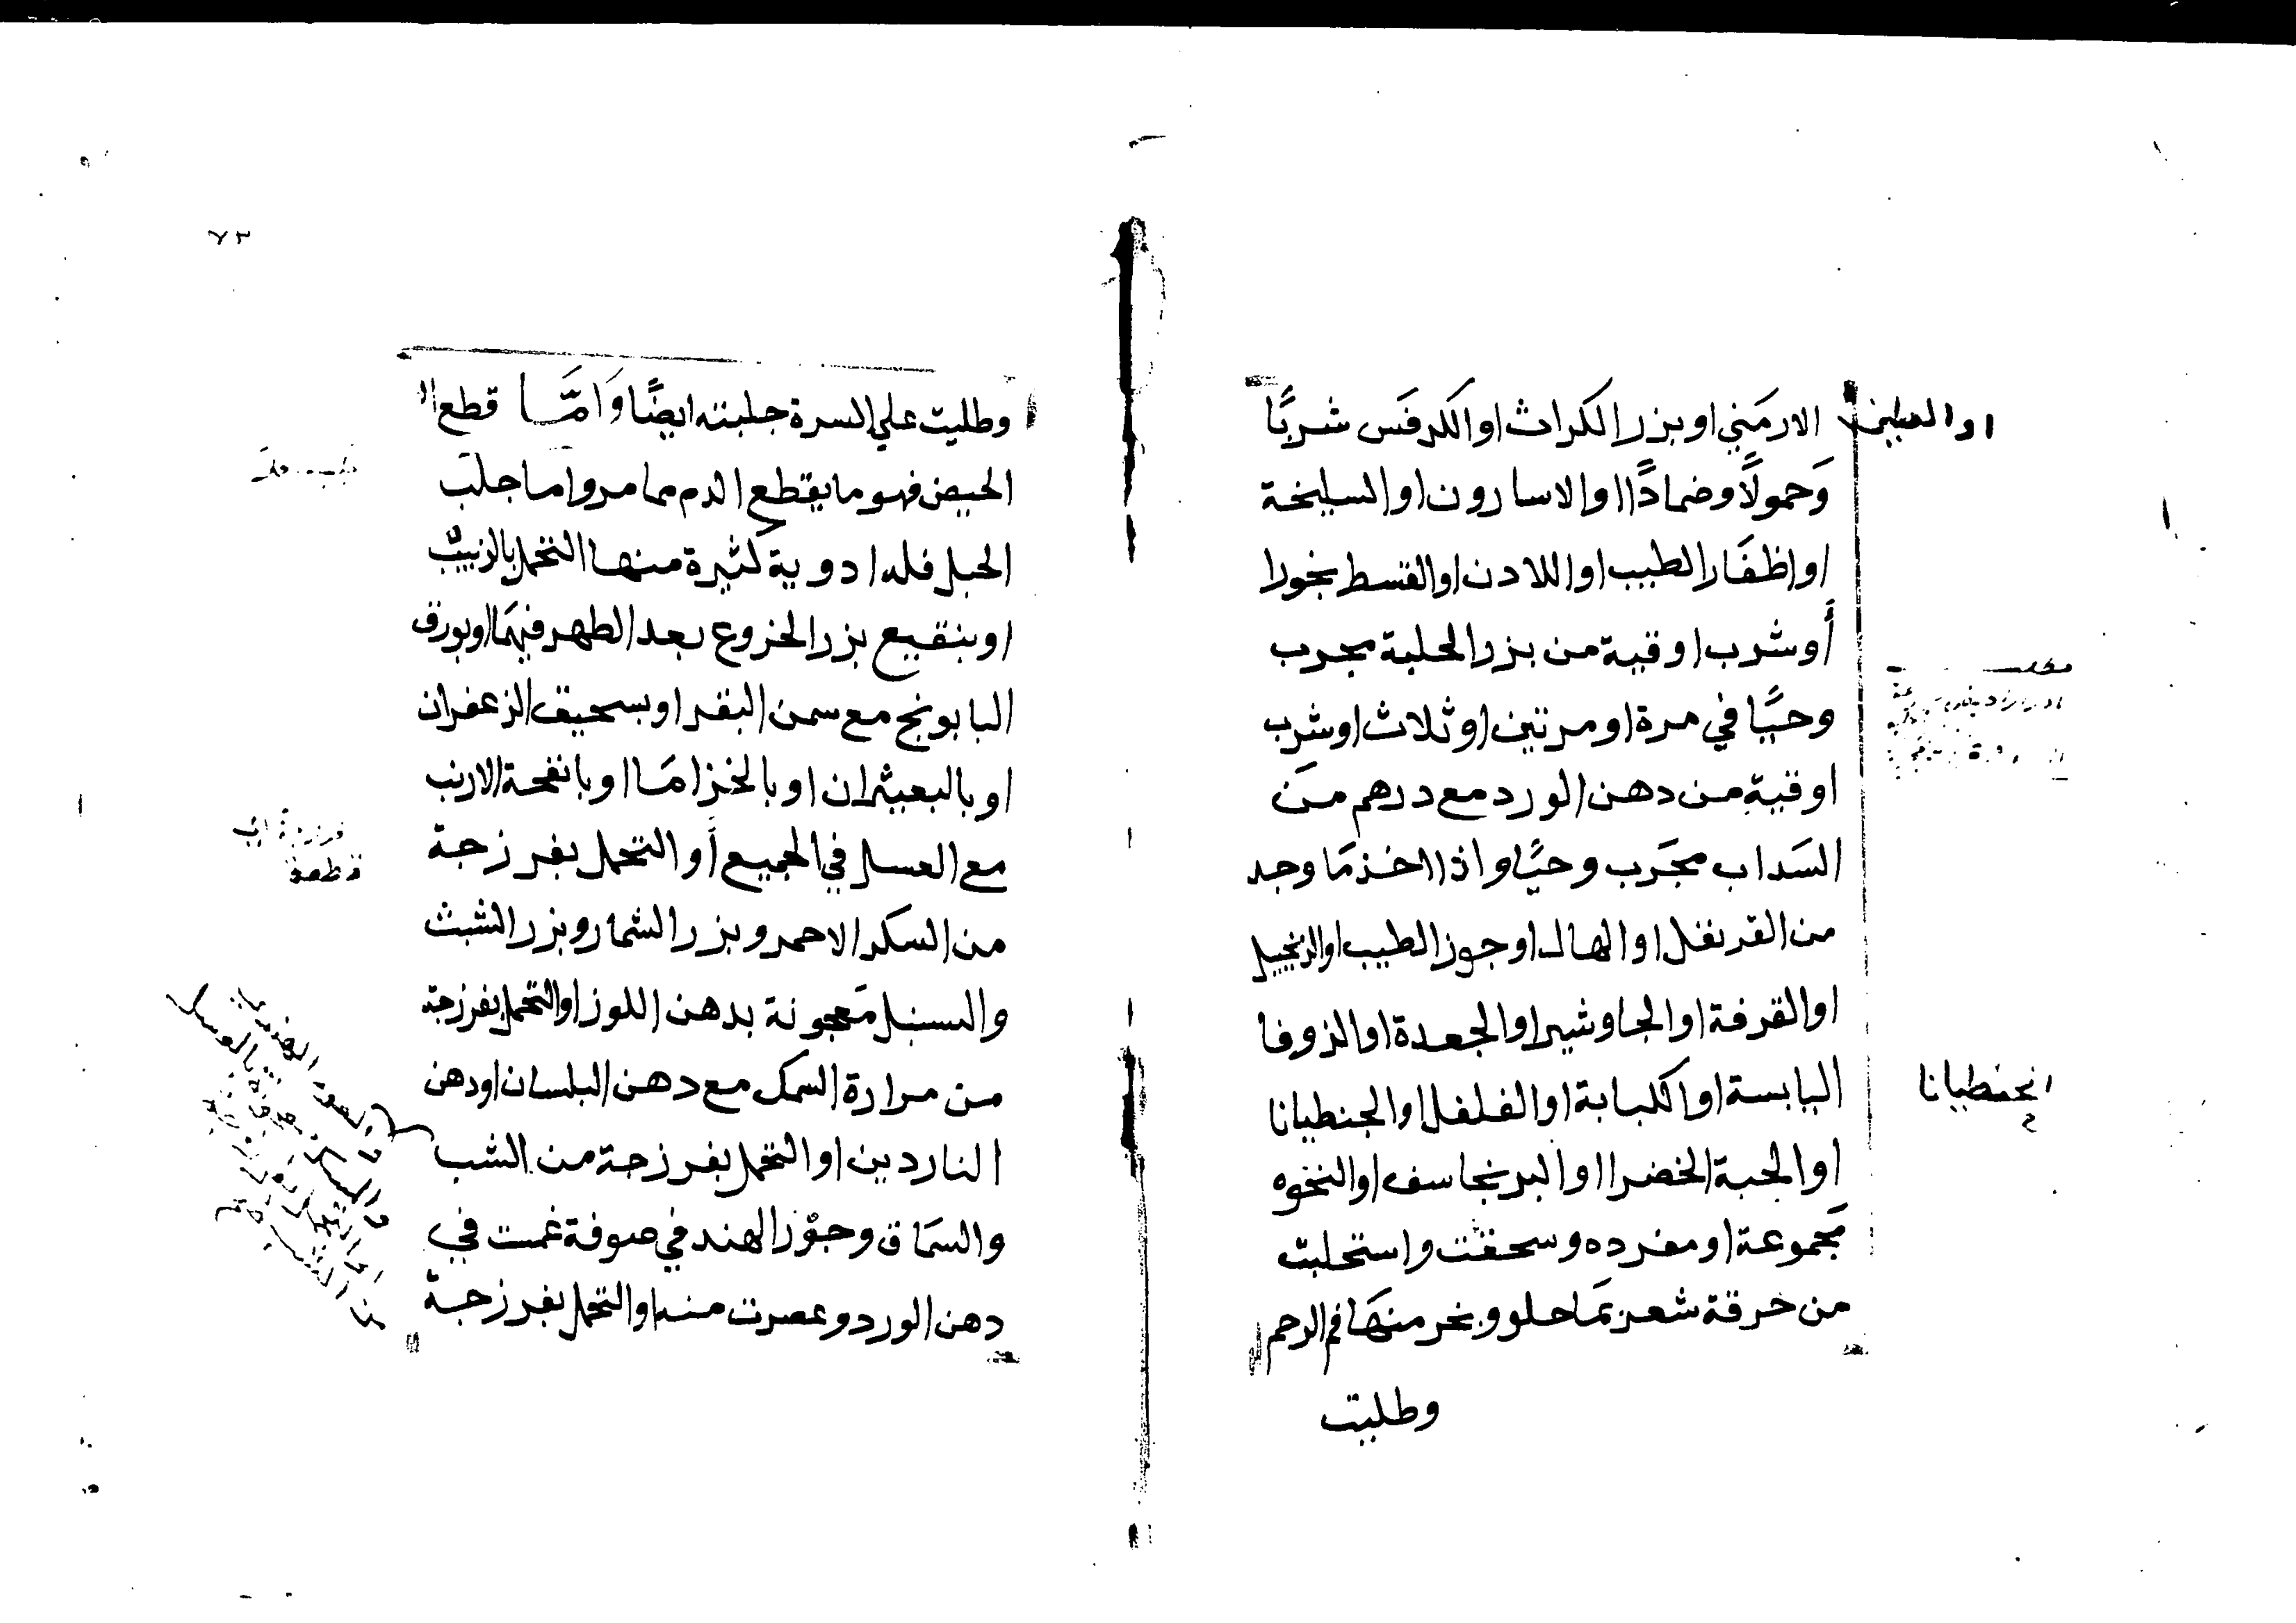 او الطين الارمني او بزر الكراث او الكرفس شربًا
وحمولًا وضمادًا او الاسارون او السليخة
او اظفار الطيب او اللادن او القسط بخورا
أو شرب اوقية من بزر الحلبة مجرب
وحيًا في مرة او مرتين او ثلاث او شرب
اوقية من دهن الورد مع درهم من
السداب مجرب وحيًا واذا اخذ ما وجد
من القرنفل او الهال او جوز الطيب او الزنجبيل
او القرفة او الجاوشير او الجعدة او الزوفا
اليابسة او الكبابة او الفلفل او الجنطيانا
الجنطيانا
او الحبة الخضرا او البرنجاسف او النخوه
مجموعة او مفرده وسحقت واستحلبت
من خرقة شعر بما حلو وبخر منها فم الرحم
وطليت
٧٣
وطليت علي السرة جلبته ايضًا وَامَّا قطع
الحيض فهو ما يقطع الدم مما مر واما جلب
الحبل فله ادوية كثيرة منها التحمل بالزبيب
او بنقيع بزر الخروع بعد الطهر فيهما او بورق
البابونج مع سمن البقر او بسحيق الزعفران
او بالبعيثران او بالخزاما او بانفحة الارنب
مع العسل في الجميع أو التحمل بفرزجة
من السكر الاحمر وبزر الشمار وبزر الشبث
والسنبل معجونة بدهن اللوز او التحمل بفرزجة
من مرارة السمك مع دهن البلسان او دهن
الناردين او التحمل بفرزجة من الشب
والسماق وجوز الهند في صوفة غمست في
دهن الورد وعصرت منه او التحمل بفرزجة